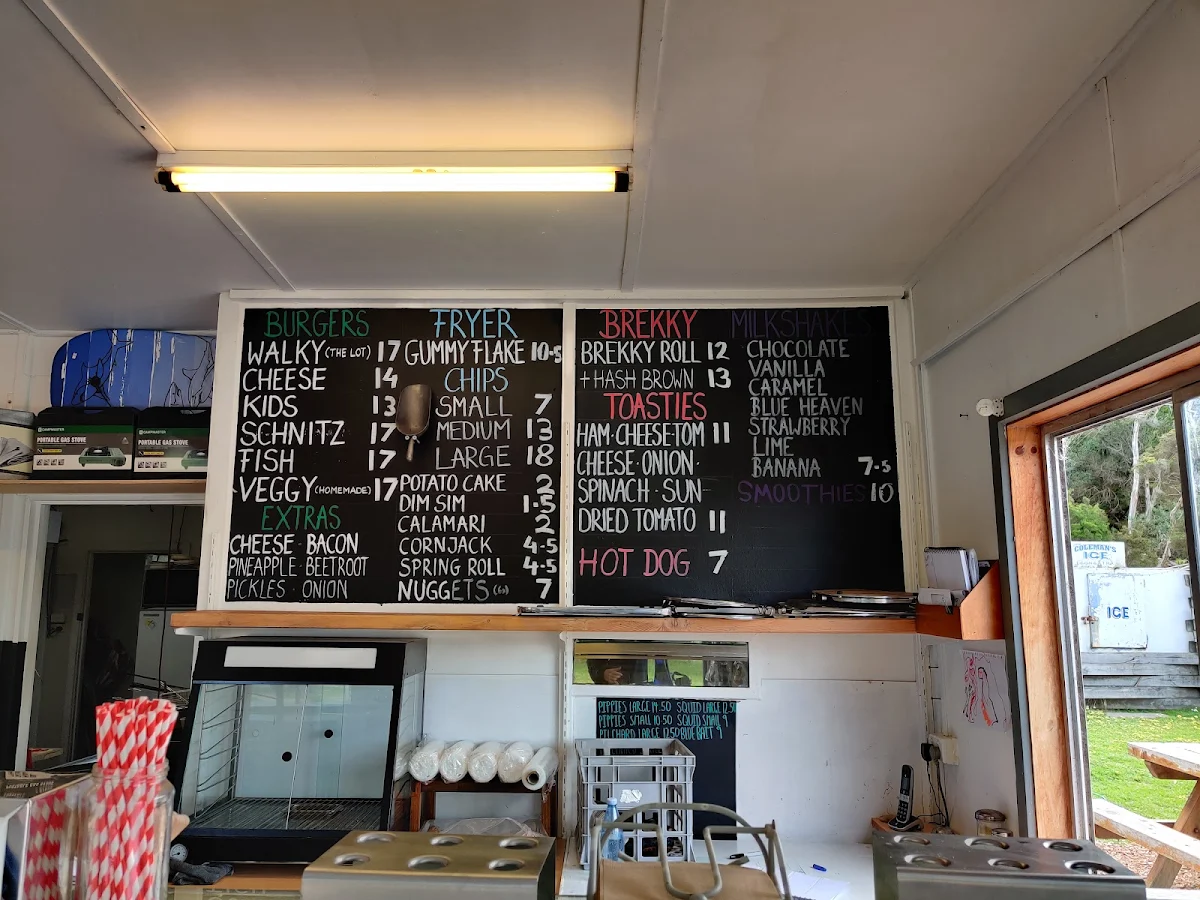 BURGERS
WALKY (THE LOT) 17
CHEESE 14
KIDS 13
SCHNITZ 17
FISH 17
VEGGY (HOMEMADE) 17
EXTRAS
CHEESE · BACON
PINEAPPLE · BEETROOT
PICKLES · ONION
FRYER
GUMMY FLAKE 10.5
CHIPS
SMALL 7
MEDIUM 13
LARGE 18
POTATO CAKE 2
DIM SIM 1.5
CALAMARI 2
CORNJACK 4.5
SPRING ROLL 4.5
NUGGETS 7
BREKKY
BREKKY ROLL 12
+ HASH BROWN 13
TOASTIES
HAM·CHEESE·TOM 11
CHEESE·ONION·
SPINACH·SUN-
DRIED TOMATO 11
HOT DOG 7
MILKSHAKES
CHOCOLATE
VANILLA
CARAMEL
BLUE HEAVEN
STRAWBERRY
LIME
BANANA 7.5
SMOOTHIES 10
PORTABLE GAS STOVE
PORTABLE GAS STOVE
COLEMAN'S
ICE
ICE
PIPPIES LARGE 19.50 SQUID LARGE 12.50
PIPPIES SMALL 10.50 SQUID SMALL 9
PILCHARD LARGE 12.50 BLUE BAIT 9